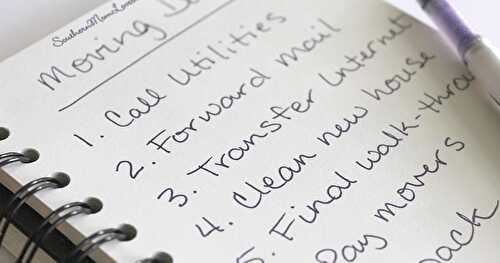 SouthernMomLoves
Moving
1. Call Utilities
2. Forward Mail
3. Transfer Internet
4. Clean new house
5. Final walk-thr
Pay movers
pack